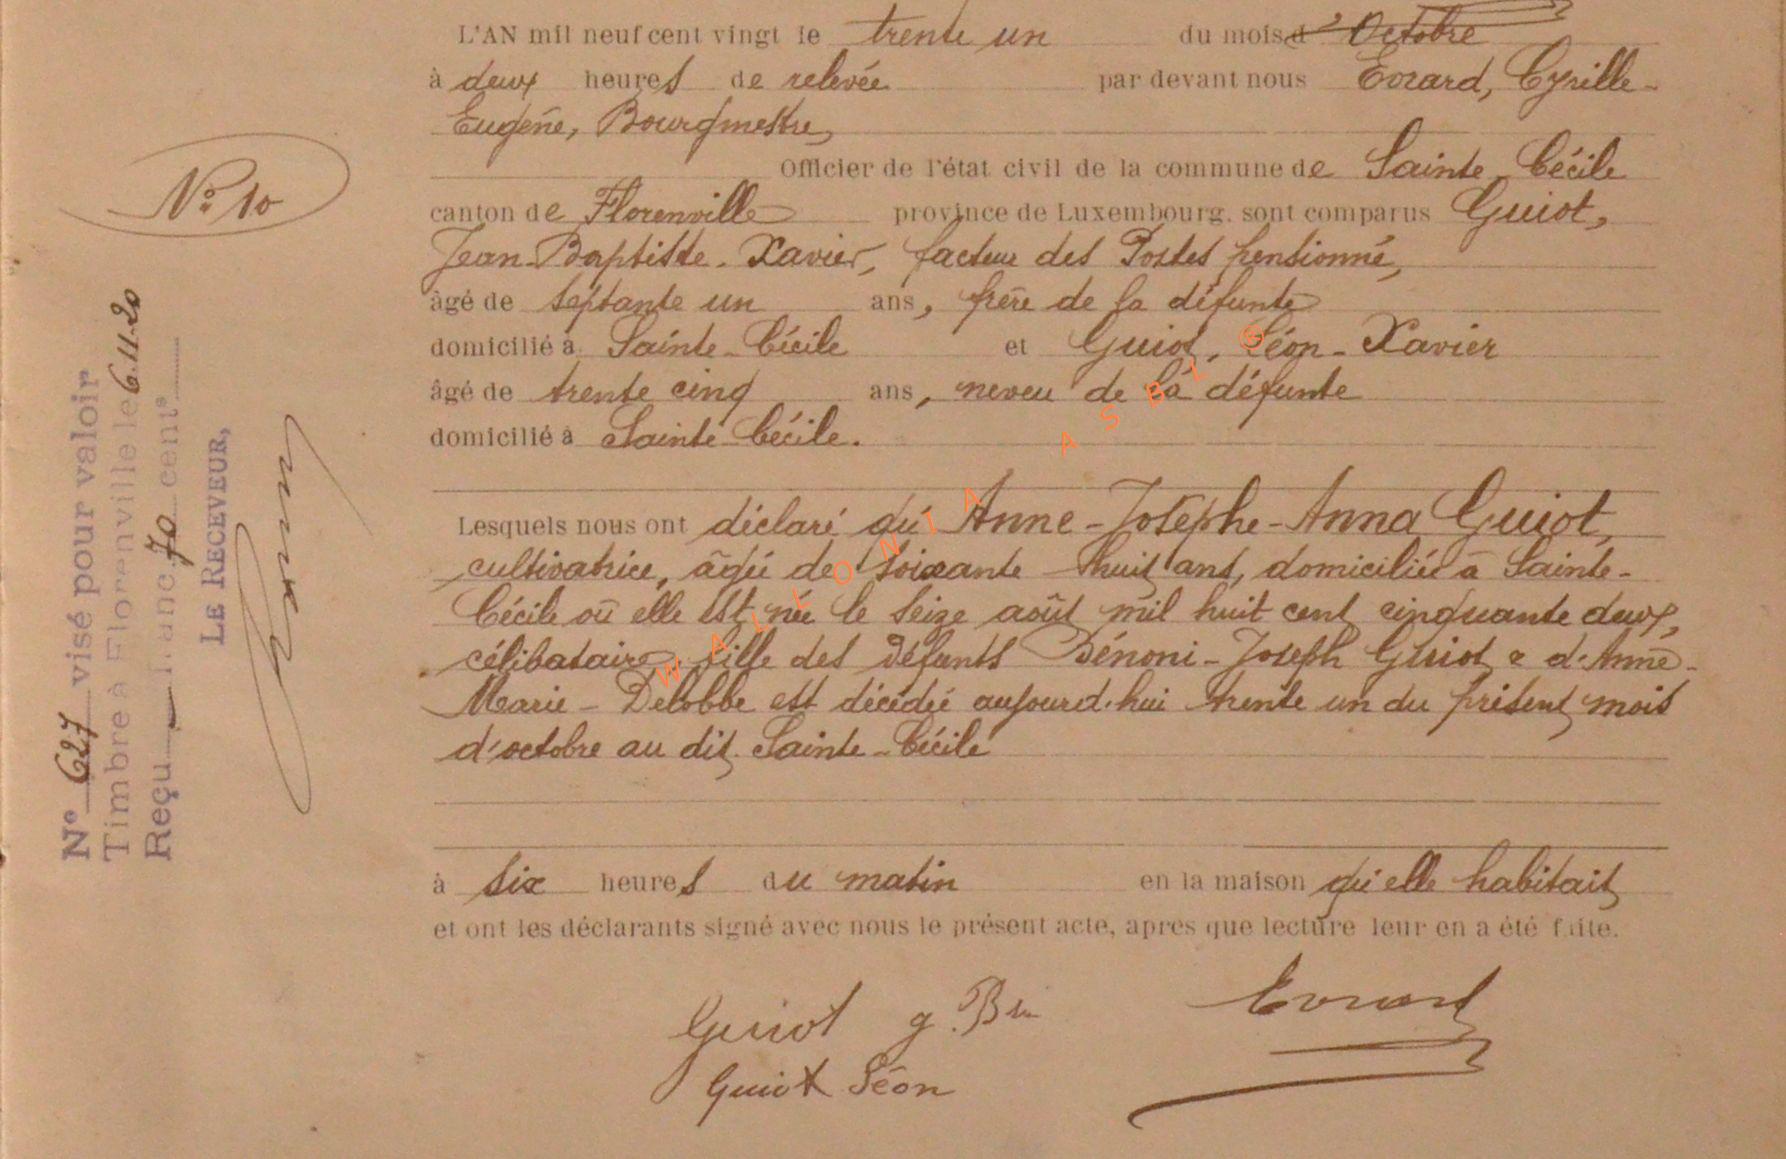 L'AN mil neuf cent vingt le trente un du mois d'Octobre
à deux heures de relevée par devant nous Evrard, Cyrille-
Eugène, Bourgmestre,
Officier de l'état civil de la commune de Sainte-Cécile
canton de Florenville province de Luxembourg, sont comparus Guiot,
Jean-Baptiste-Xavier, facteur des Postes pensionné,
âgé de septante un ans, frère de la défunte
domicilié à Sainte-Cécile et Guiot, Léon-Xavier
âgé de trente cinq ans, neveu de la défunte
domicilié à Sainte Cécile.
Lesquels nous ont déclaré qu'Anne-Josephe-Anna Guiot,
cultivatrice, âgée de soixante huit ans, domiciliée à Sainte-
Cécile où elle est née le seize août mil huit cent cinquante deux,
célibataire, fille des défunts Bénoni-Joseph Guiot & d'Anne-
Marie-Delobbe est décédée aujourd'hui trente un du présent mois
d'octobre au dit Sainte-Cécile
à six heures du matin en la maison qu'elle habitait
et ont les déclarants signé avec nous le présent acte, apres que lecture leur en a été faite.
Guiot J. Bte
Evrard
Guiot Léon
No 10
No 627 visé pour valoir
Timbre à Florenville le 6.11.20
Reçu franc 70 cents
LE RECEVEUR,
WALLONIA ASBL ©